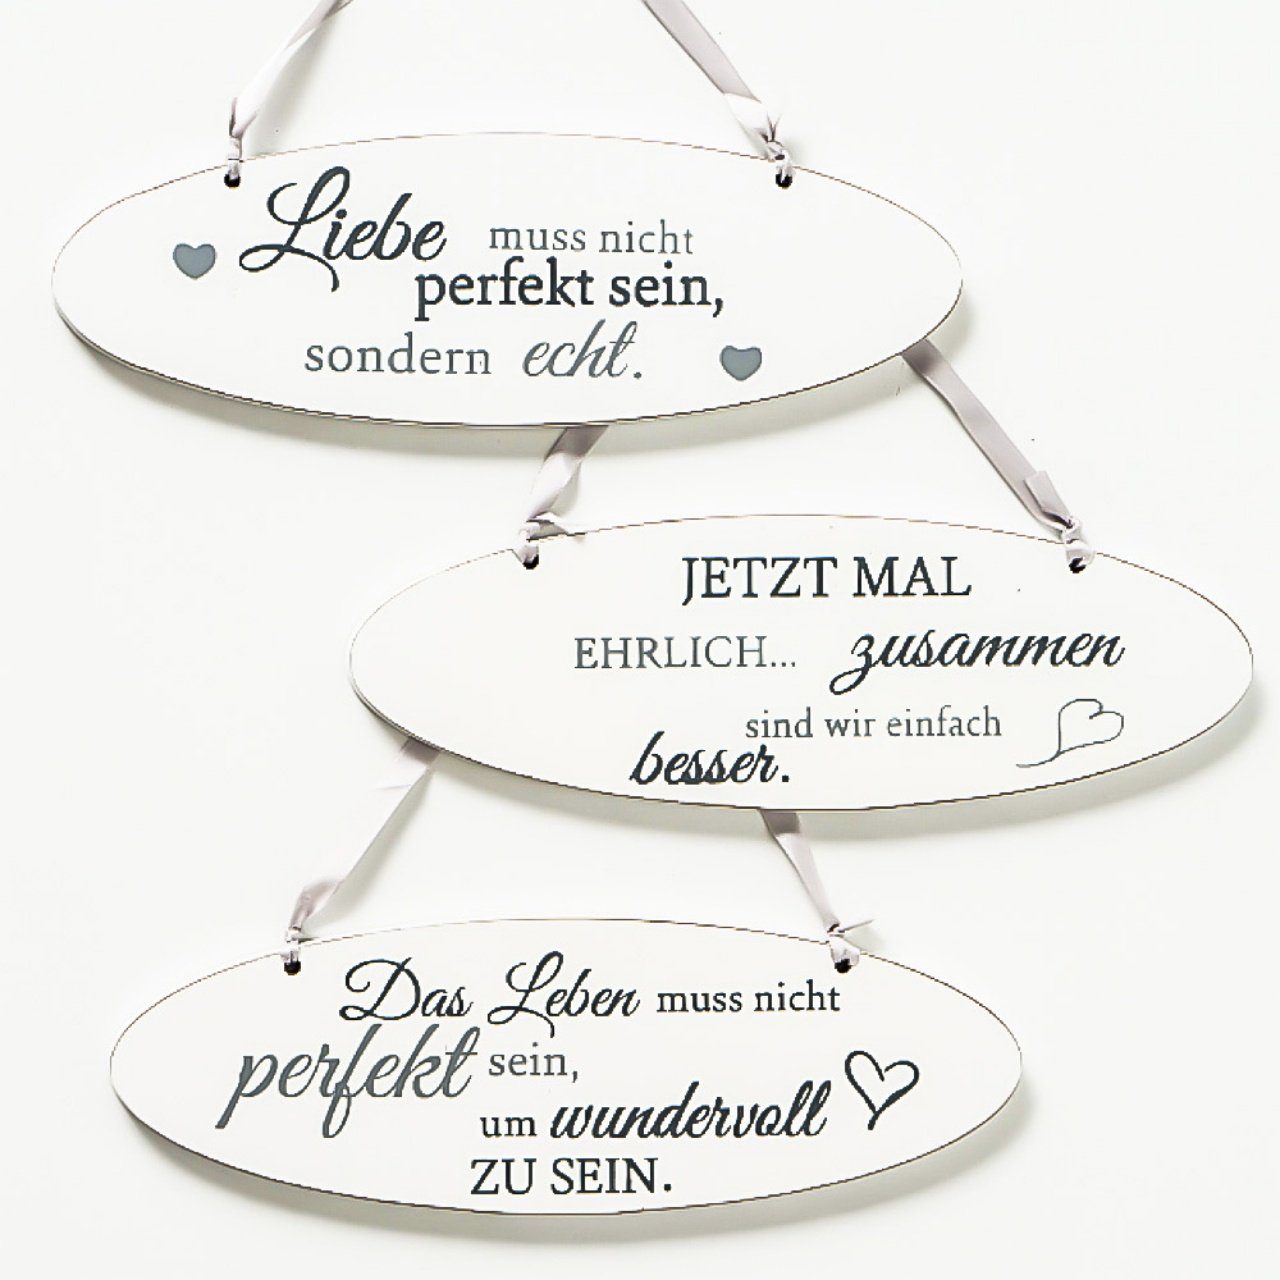 Liebe muss nicht
perfekt sein,
sondern echt.
JETZT MAL
EHRLICH... zusammen
sind wir einfach
besser.
Das Leben muss nicht
perfekt sein,
um wundervoll
ZU SEIN.